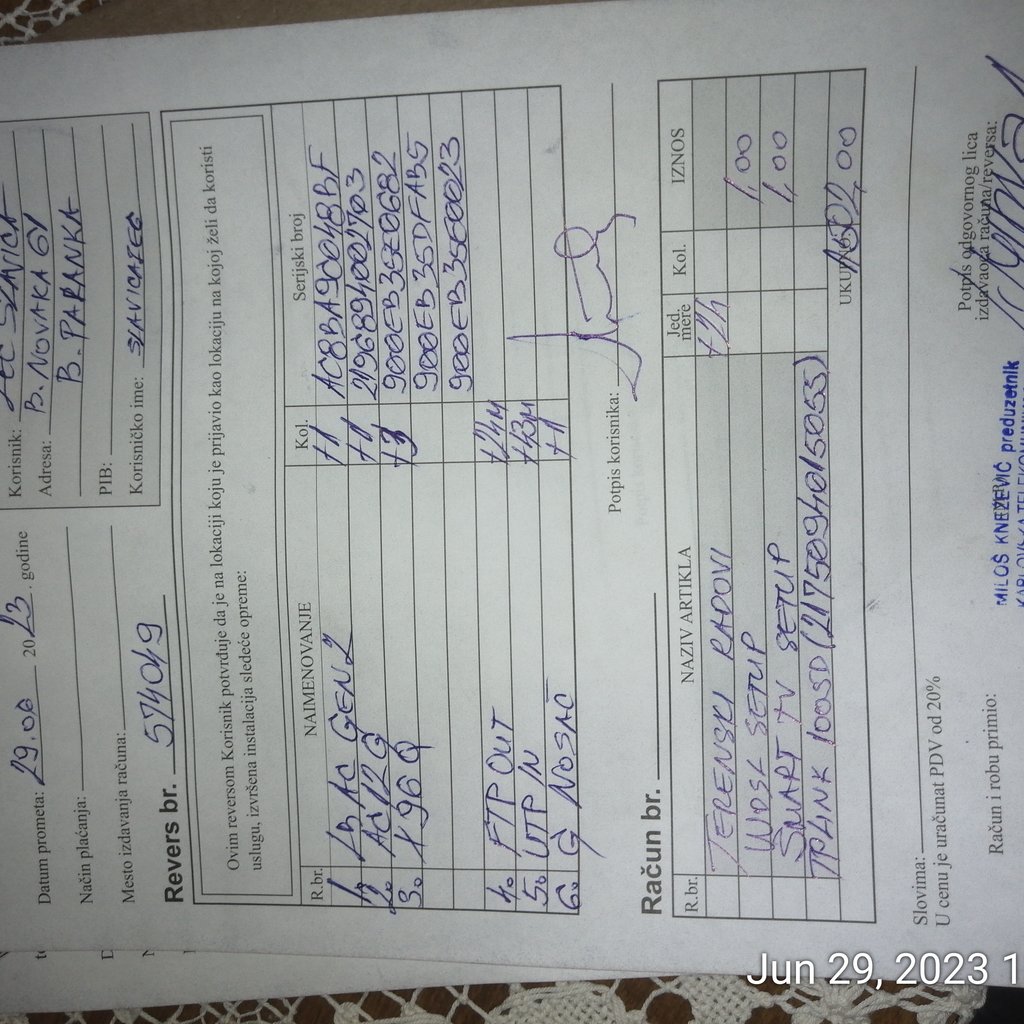 Datum prometa: 29.06 2023. godine
Način plaćanja:
Mesto izdavanja računa:
Korisnik: SLAVICA
Adresa: B. NOVAKA 64
B. PALANKA
PIB:
Korisničko ime: SLAVICAZEC
Revers br. 574049
Ovim reversom Korisnik potvrđuje da je na lokaciji koju je prijavio kao lokaciju na kojoj želi da koristi
uslugu, izvršena instalacija sledeće opreme:
R.br. NAIMENOVANJE Kol. Serijski broj
1. LB AC GEN2 +1 AC8BA9C04BBF
2. AC12G +1 2196894002703
3. X96Q +3 900EB35E0682
900EB35DFAB5
900EB35E0023
4. FTP OUT
5. UTP IN
6. G NOSAČ +1
Potpis korisnika:
Račun br.
R.br. NAZIV ARTIKLA Jed. mere Kol. IZNOS
TERENSKI RADOVI
WDSL SETUP 1,00
SMART TV SETUP 1,00
TPLINK 100SD (2175094015053)
UKUPNO: 2,00
Slovima:
U cenu je uračunat PDV od 20%
Račun i robu primio:
Potpis odgovornog lica
izdavaoca računa/reversa:
MILOŠ KNEŽEVIĆ preduzetnik
Jun 29, 2023 1